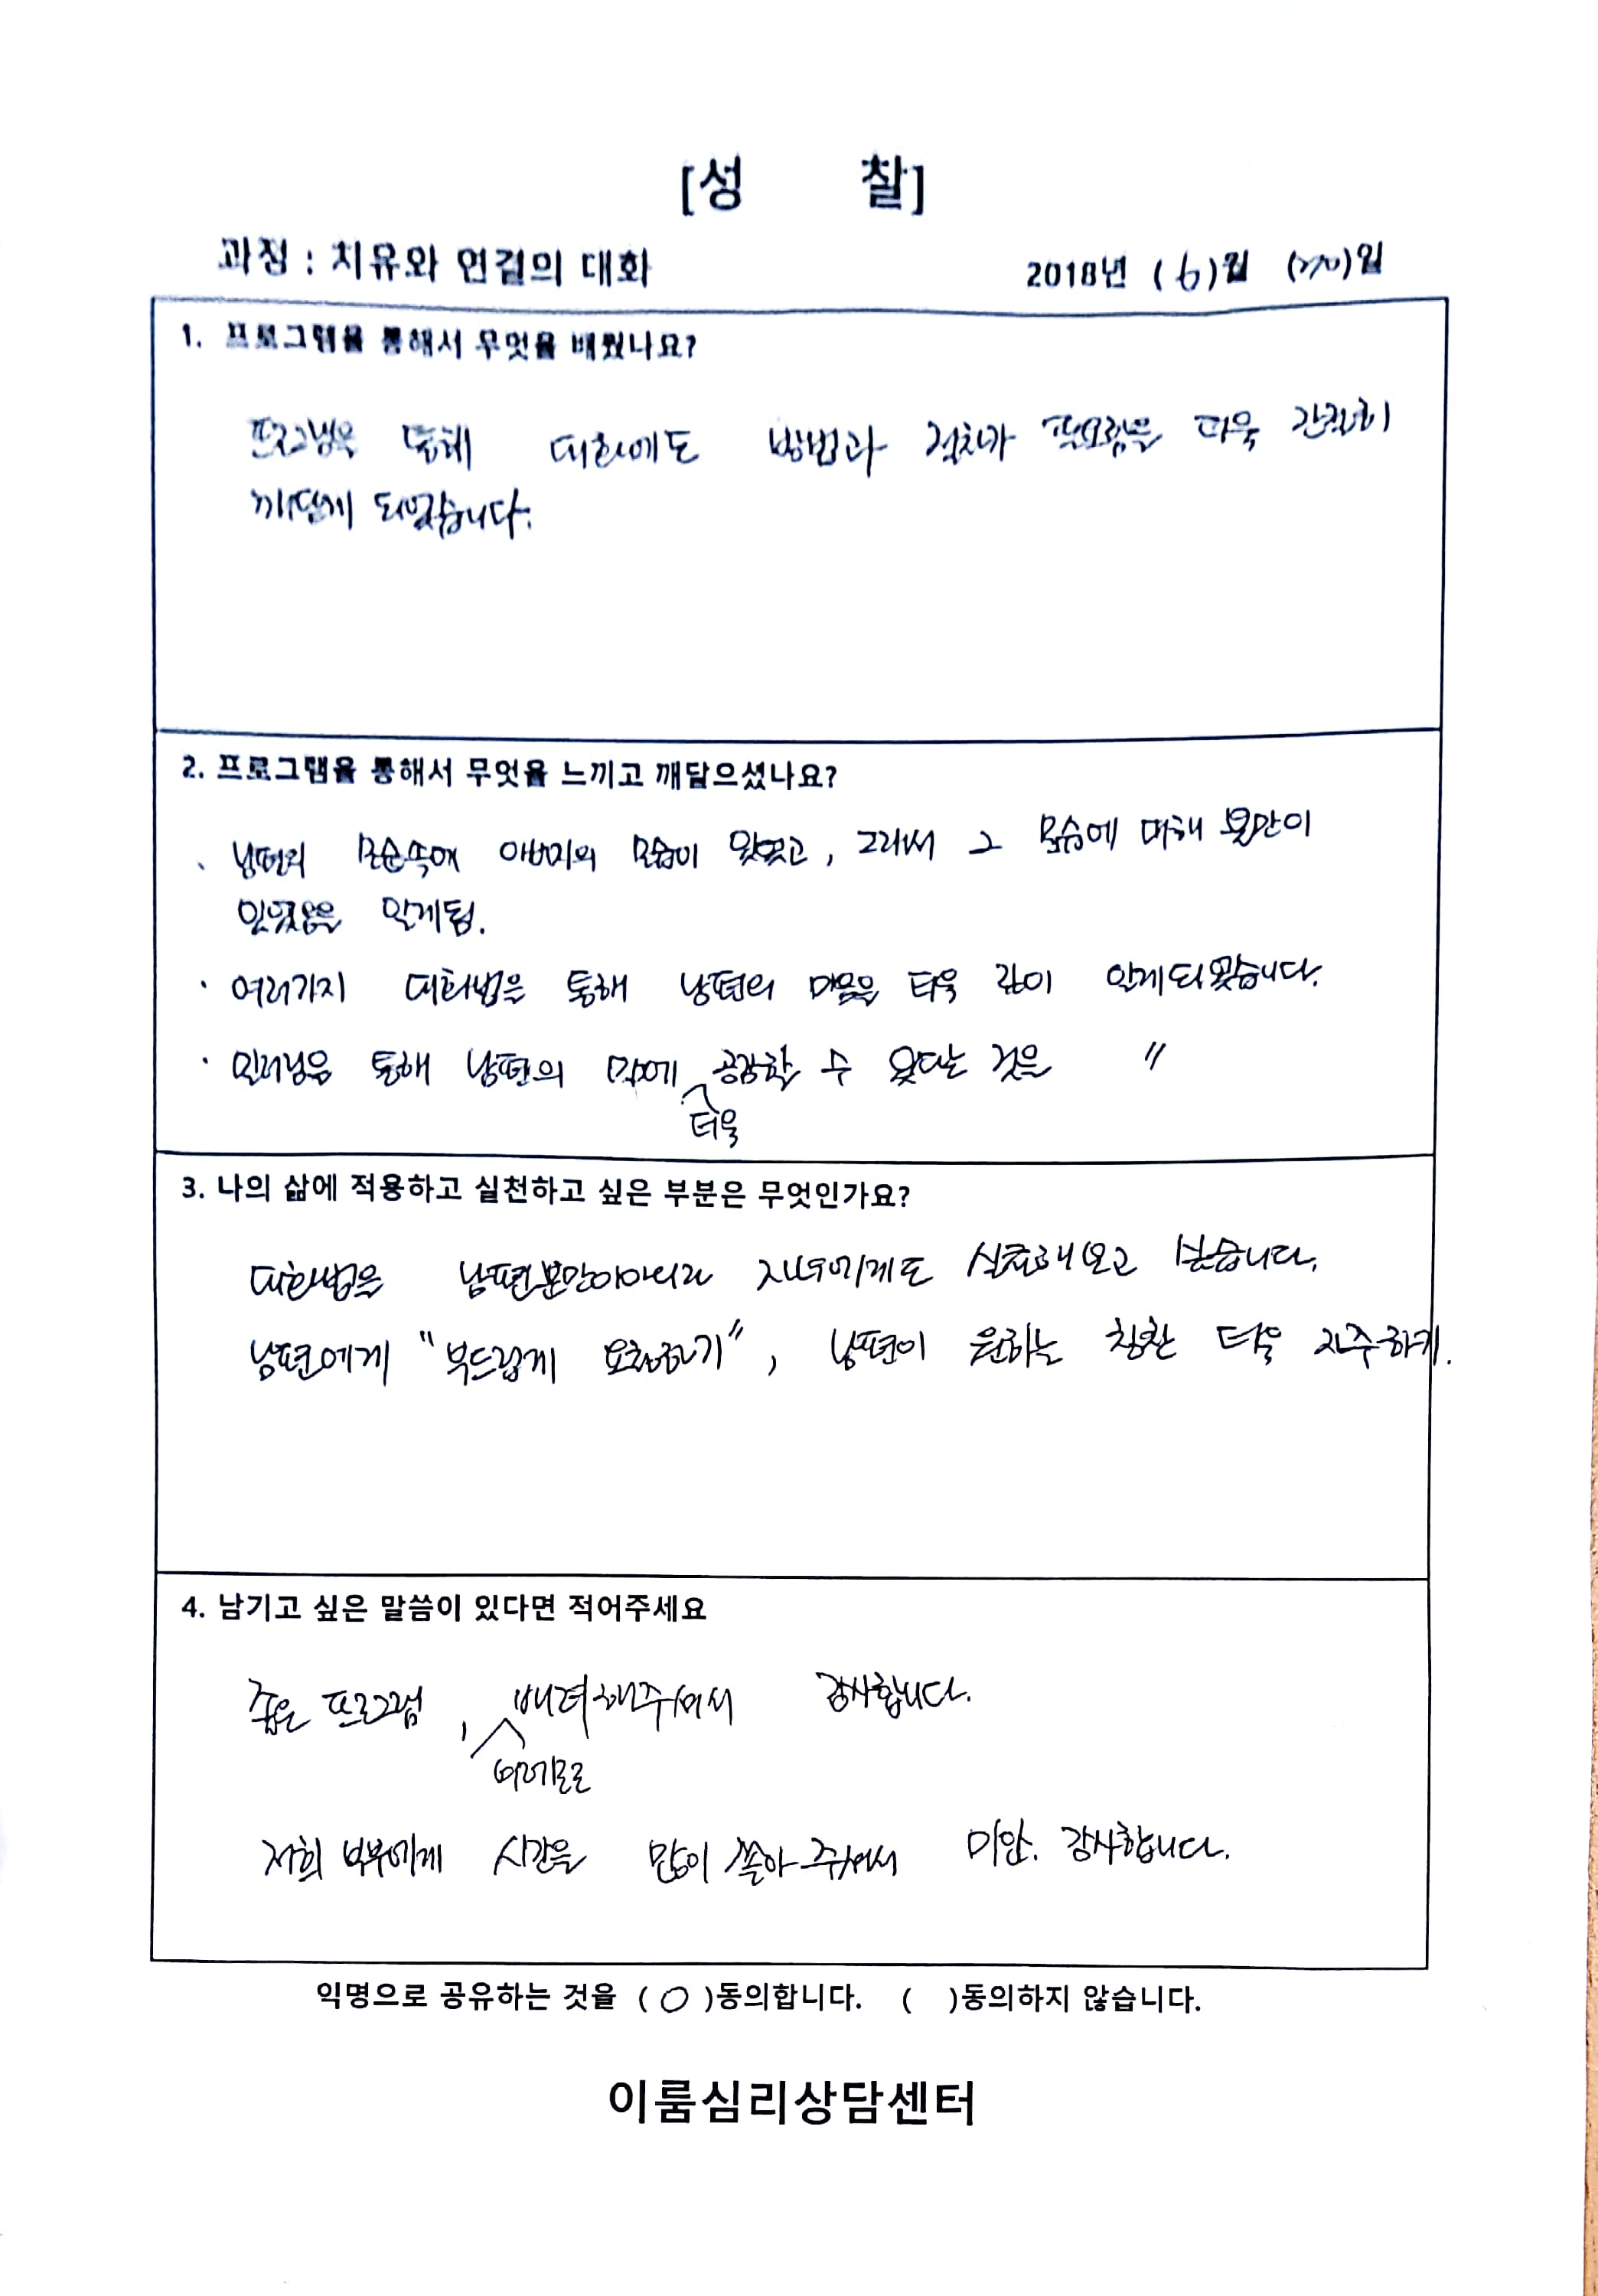 [성 찰]
과정 : 치유와 연결의 대화 2018년 (6)월 (20)일
1. 프로그램을 통해서 무엇을 배웠나요?
프로그램을 통해 대화에도 방법과 절차가 필요함을 더욱 간절히
깨닫게 되었습니다.
2. 프로그램을 통해서 무엇을 느끼고 깨달으셨나요?
· 남편의 모순속에 아버지의 모습이 있었고, 그래서 그 모습에 대해 불만이
있었음을 알게됨.
· 여러가지 대화법을 통해 남편의 마음을 더욱 깊이 알게되었습니다.
· 미러링을 통해 남편의 말에 더욱 공감할 수 있다는 것을 〃
3. 나의 삶에 적용하고 실천하고 싶은 부분은 무엇인가요?
대화법을 남편뿐만이아니라 자녀에게도 실천해보고 싶습니다.
남편에게 "부드럽게 요청하기", 남편이 원하는 칭찬 더욱 자주하기.
4. 남기고 싶은 말씀이 있다면 적어주세요
좋은 프로그램, 배려해주셔서 감사합니다.
저희 부부에게 시간을 많이 쏟아주셔서 미안. 감사합니다.
익명으로 공유하는 것을 ( O )동의합니다. ( )동의하지 않습니다.
이룸심리상담센터